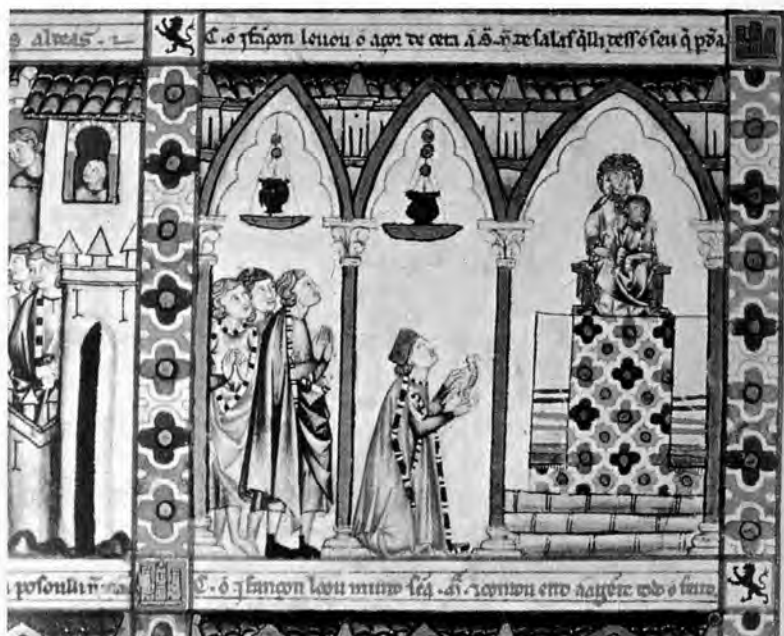 s aldeas .
C. ó ifançon leuou ó açor de cera á S. M. de salas q̃ lli desse ó seu q̃ pda
posoulli
C. ó ifançon loou muito sc̃a. M. ⁊ contou a agente todo o feito